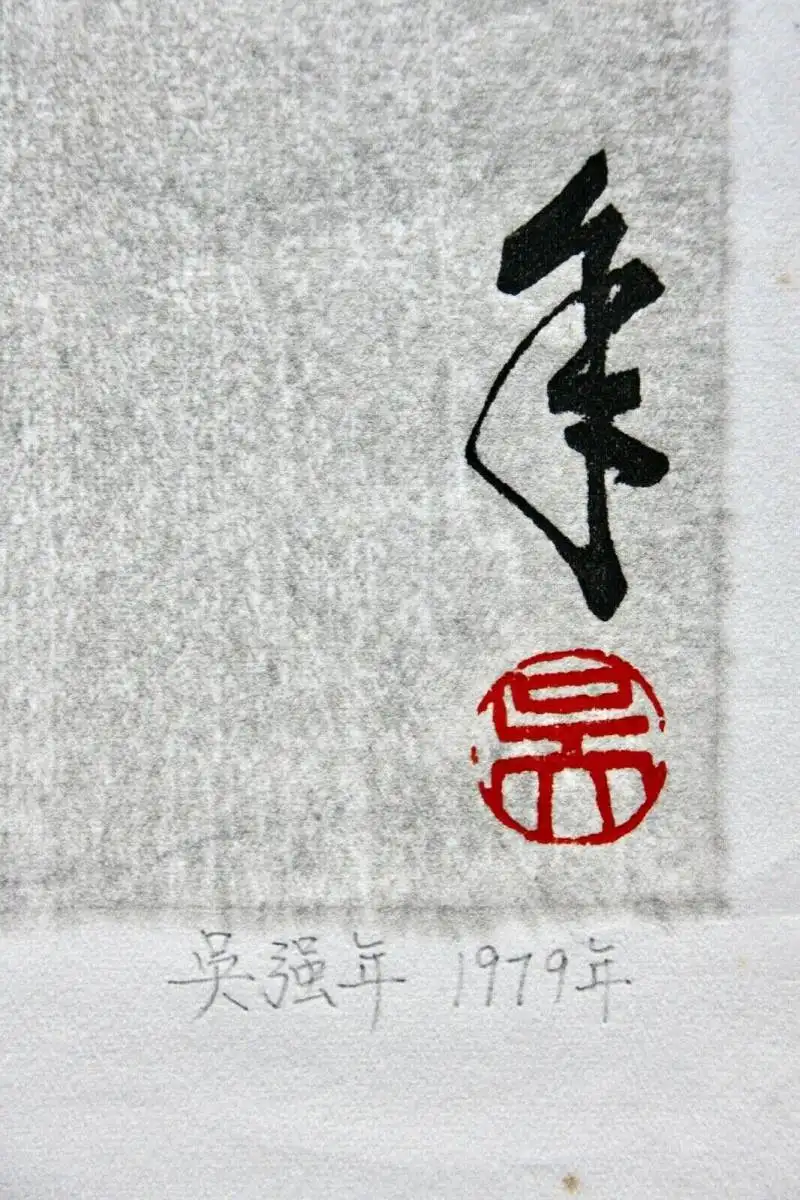 年
吴
吳强年 1979年